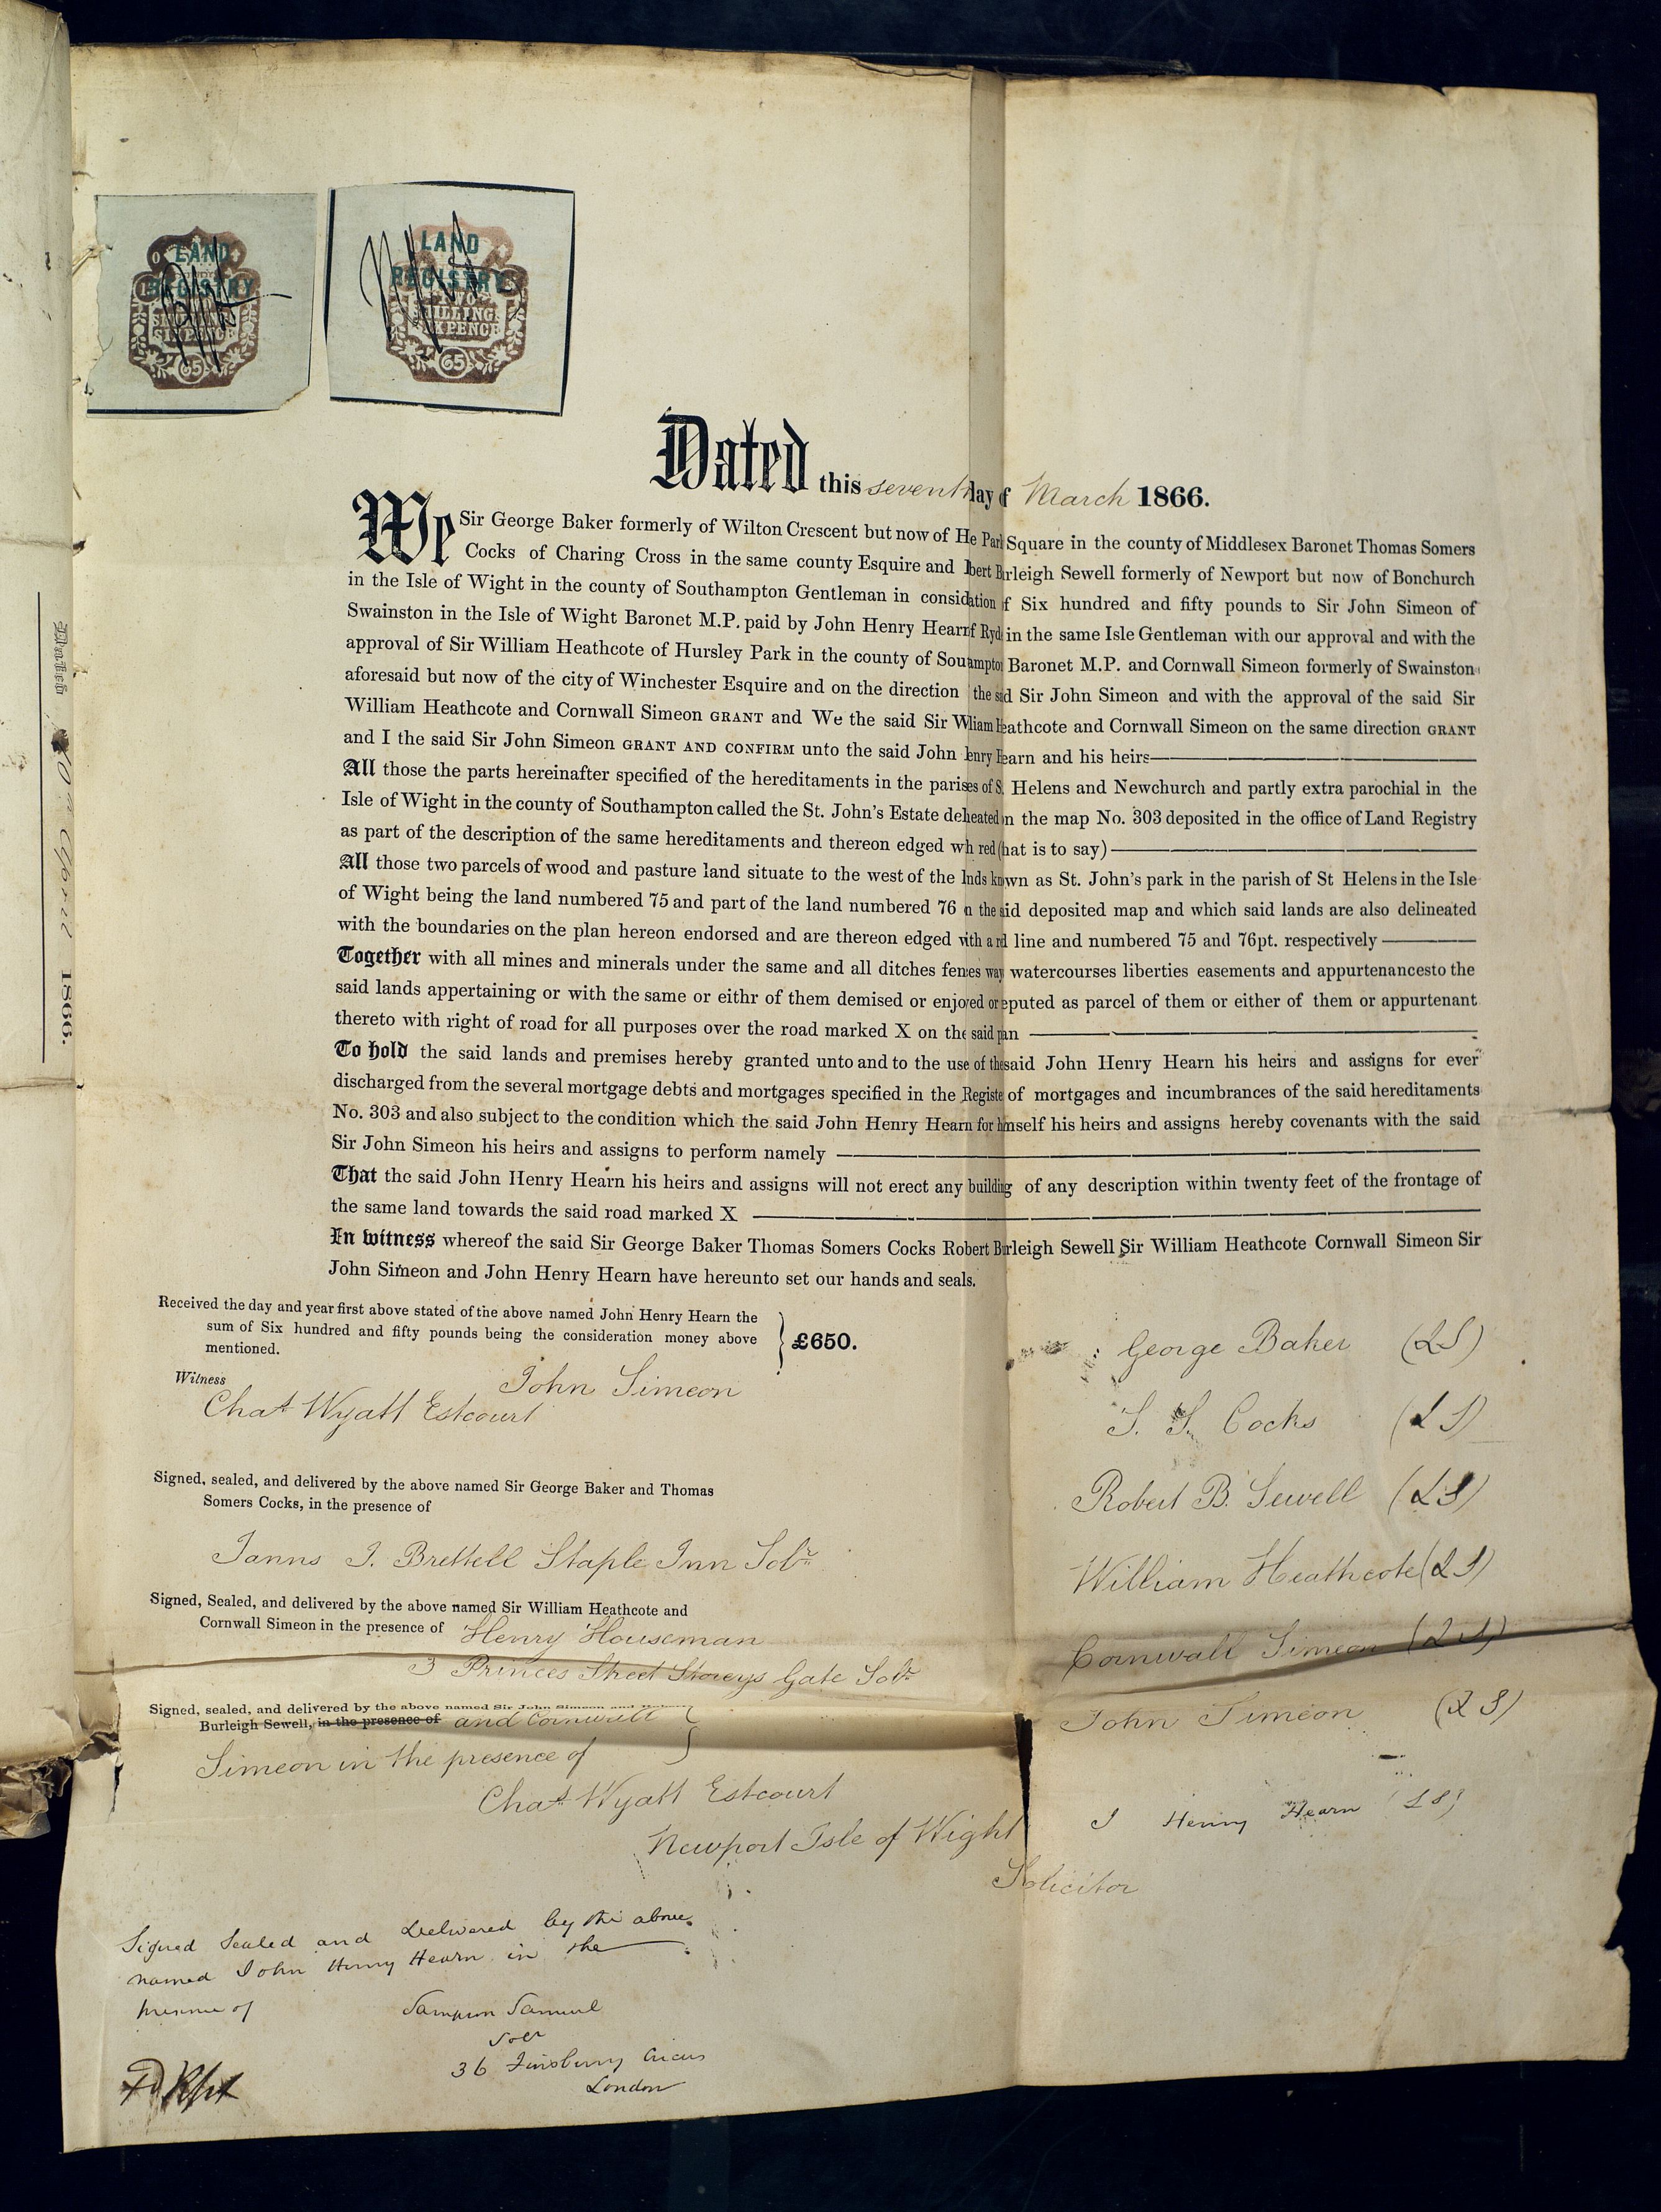 LAND
REGISTRY
SIXPENCE
65
LAND
REGISTRY
TWO
SHILLINGS
SIXPENCE
65
Dated
April 1866.
Dated this seventh day of March 1866.
We Sir George Baker formerly of Wilton Crescent but now of He Park Square in the county of Middlesex Baronet Thomas Somers
Cocks of Charing Cross in the same county Esquire and bert Burleigh Sewell formerly of Newport but now of Bonchurch
in the Isle of Wight in the county of Southampton Gentleman in consideration of Six hundred and fifty pounds to Sir John Simeon of
Swainston in the Isle of Wight Baronet M.P. paid by John Henry Hearn of Ryde in the same Isle Gentleman with our approval and with the
approval of Sir William Heathcote of Hursley Park in the county of Southampton Baronet M.P. and Cornwall Simeon formerly of Swainston
aforesaid but now of the city of Winchester Esquire and on the direction the said Sir John Simeon and with the approval of the said Sir
William Heathcote and Cornwall Simeon GRANT and We the said Sir William Heathcote and Cornwall Simeon on the same direction GRANT
and I the said Sir John Simeon GRANT AND CONFIRM unto the said John Henry Hearn and his heirs
All those the parts hereinafter specified of the hereditaments in the parishes of St. Helens and Newchurch and partly extra parochial in the
Isle of Wight in the county of Southampton called the St. John's Estate delineated on the map No. 303 deposited in the office of Land Registry
as part of the description of the same hereditaments and thereon edged with red (that is to say)
All those two parcels of wood and pasture land situate to the west of the lands known as St. John's park in the parish of St Helens in the Isle
of Wight being the land numbered 75 and part of the land numbered 76 on the said deposited map and which said lands are also delineated
with the boundaries on the plan hereon endorsed and are thereon edged with a red line and numbered 75 and 76pt. respectively
Together with all mines and minerals under the same and all ditches fences ways watercourses liberties easements and appurtenancesto the
said lands appertaining or with the same or eithr of them demised or enjoyed or reputed as parcel of them or either of them or appurtenant
thereto with right of road for all purposes over the road marked X on the said plan
To hold the said lands and premises hereby granted unto and to the use of the said John Henry Hearn his heirs and assigns for ever
discharged from the several mortgage debts and mortgages specified in the Register of mortgages and incumbrances of the said hereditaments
No. 303 and also subject to the condition which the said John Henry Hearn for himself his heirs and assigns hereby covenants with the said
Sir John Simeon his heirs and assigns to perform namely
That the said John Henry Hearn his heirs and assigns will not erect any building of any description within twenty feet of the frontage of
the same land towards the said road marked X
In witness whereof the said Sir George Baker Thomas Somers Cocks Robert Burleigh Sewell Sir William Heathcote Cornwall Simeon Sir
John Simeon and John Henry Hearn have hereunto set our hands and seals.
Received the day and year first above stated of the above named John Henry Hearn the
sum of Six hundred and fifty pounds being the consideration money above
mentioned.
£650.
Witness
John Simeon
Chas Wyatt Estcourt
Signed, sealed, and delivered by the above named Sir George Baker and Thomas
Somers Cocks, in the presence of
J. Brettell Staple Inn Solr
Signed, Sealed, and delivered by the above named Sir William Heathcote and
Cornwall Simeon in the presence of Henry Houseman
3 Princes Street Storeys Gate Solr
Signed, sealed, and delivered by the above named Sir John Simeon and Robert
Burleigh Sewell, in the presence of and Cornwall
Simeon in the presence of
Chas Wyatt Estcourt
Newport Isle of Wight
Solicitor
George Baker (LS)
T. S. Cocks (LS)
Robert B. Sewell (LS)
William Heathcote (LS)
Cornwall Simeon (LS)
John Simeon (LS)
J Henry Hearn (LS)
Signed Sealed and Delivered by the above
named John Henry Hearn in the
presence of
Sampson Samuel
Solr
36 Finsbury Circus
London